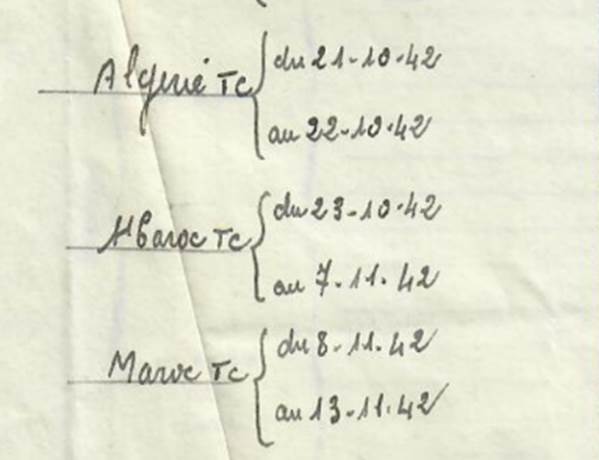 du 21-10-42
Algerié TC
au 22-10-42
du 23-10-42
Maroc TC
au 7-11-42
du 8-11-42
Maroc TC
au 13-11-42